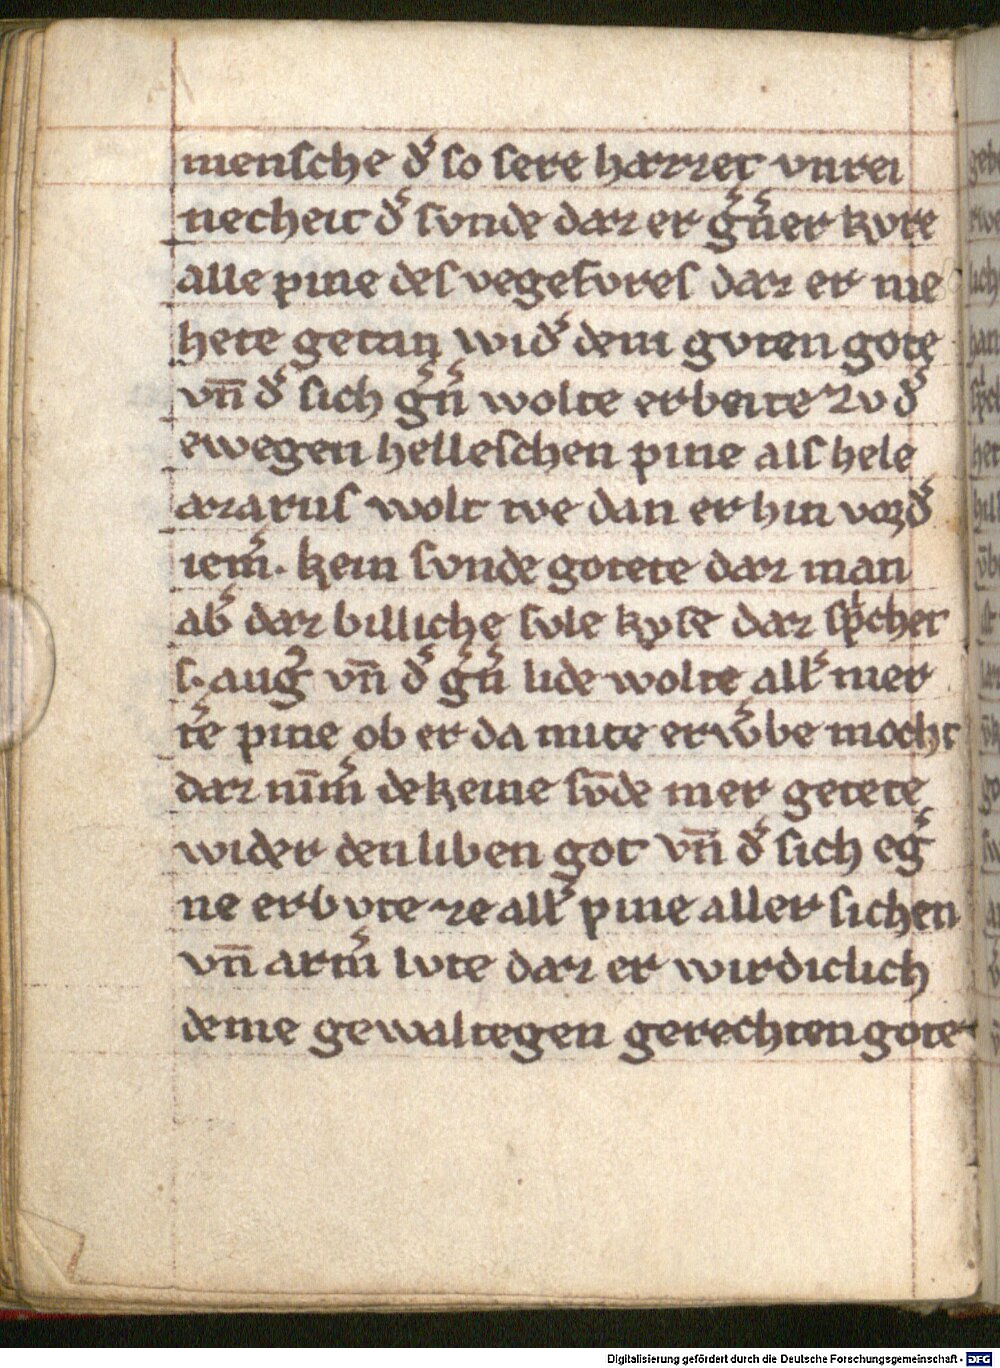 mensche d͛ so sere hazzet vnrei
necheit d͛ sunde daz er g͛n͛er kvre
alle pine des vegefvres daz er nie
hete getan wid͛ dem gvten gote
vn̄ d͛ sich g͛n͛ wolte erbeite zv d͛
ewegen helleschen pine als hele
azarus wolt tve dan er hin vorꝺ͛
iem͛. kein sunde gotete daz man
ab͛ daz billiche sule kyse daz sp͛chet
s. aug͛ vn̄ d͛ g͛n͛ lide wolte all͛ mer
te͛ pine ob er da mite erw͛be mocht
daz nim̄͛ dekeine sv̄de mer getete
wider den liben got vn̄ d͛ sich eg͛
ne erbvte ze all͛ pine aller sichen
vn̄ arm͛ lvte daz er wirdiclich
deme gewaltegen gerechten gote
Digitalisierung gefördert durch die Deutsche Forschungsgemeinschaft - DFG